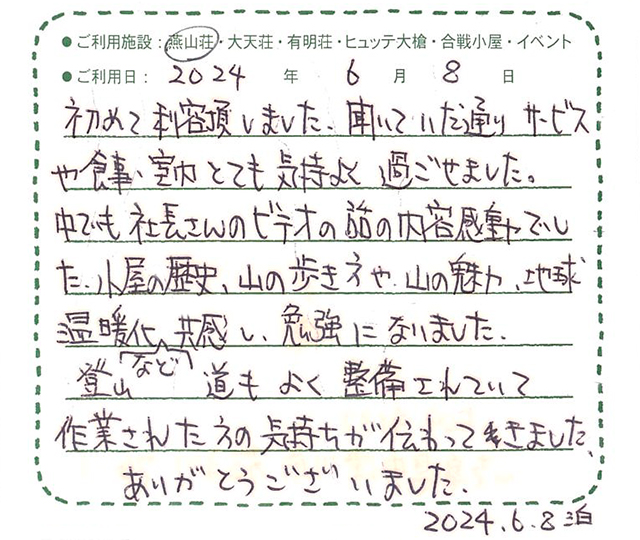 ●ご利用施設：燕山荘・大天荘・有明荘・ヒュッテ大槍・合戦小屋・イベント
●ご利用日： 2024 年 6 月 8 日
初めて利容頂しました、聞いていた通り サービス
や食事、室内 とても 気持よく 過ごせました。
中でも 社長さんのビデオの話の内容感動でし
た、小屋の歴史、山の歩き方や、山の魅力、地球
温暖化、共感し、勉強になりました、
など
登山 道も よく 整備されていて
作業された方の気持ちが伝わってきました、
ありがとうございました、
2024.6.8 泊